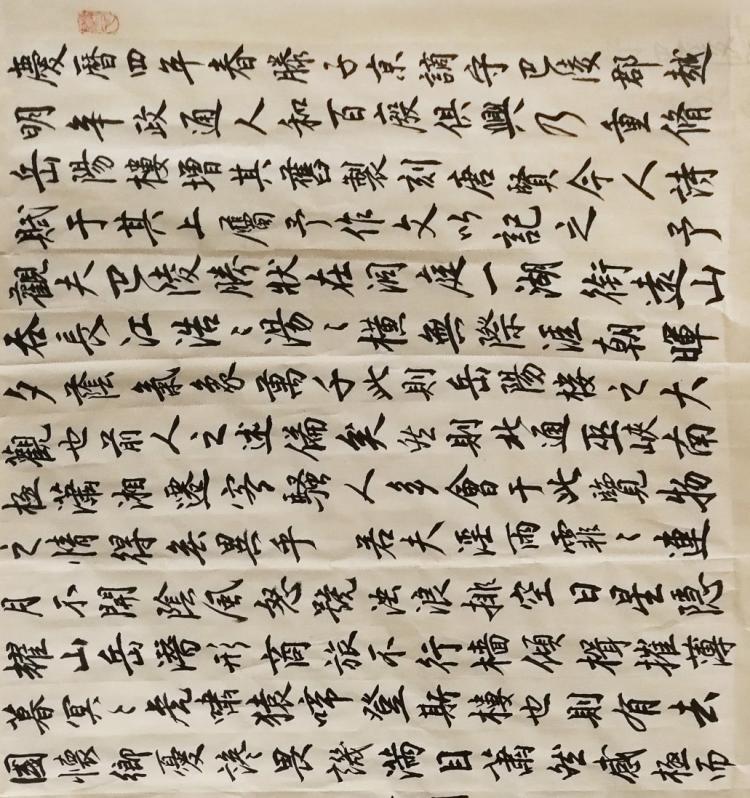 慶曆四年春滕子京謫守巴陵郡越
明年政通人和百廢俱興乃重脩
岳陽樓增其舊製刻唐賢今人詩
賦于其上屬予作文以記之 予
觀夫巴陵勝狀在洞庭一湖銜遠山
吞長江浩〻湯〻橫無際涯朝暉
夕蔭氣象萬千此則岳陽樓之大
觀也前人之述備矣然則北通巫峽南
極瀟湘遷客騷人多會于此覽物
之情得無異乎 若夫淫雨霏〻連
月不開陰風怒號濁浪排空日星隱
耀山岳潛形商旅不行檣傾楫摧薄
暮冥〻虎嘯猿啼登斯樓也則有去
國懷鄉憂讒畏譏滿目蕭然感極而